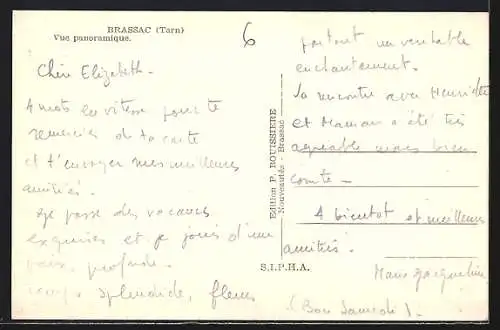 BRASSAC (Tarn)
Vue panoramique.
6
Chère Elizabeth -
4 mots en vitesse pour te
remercier de ta carte
et t'envoyer mes meilleures
amitiés.
Je passe des vacances
exquises et je jouis d'une
paix profonde.
temps splendide, fleurs
partout un véritable
enchantement.
La rencontre avec
et Maman a été très
agréable mais bien
courte -
A bientôt et meilleures
amitiés.
Marie Jacqueline
(Bon Samedi).
Edition P. ROUISSIERE
Nouveautés - Brassac
S.I.P.H.A.